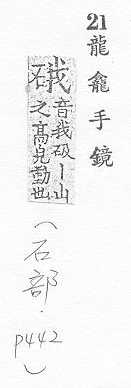 21 龍龕手鏡
硪
音我砐丨山
之高皃動也
（石部．p442）